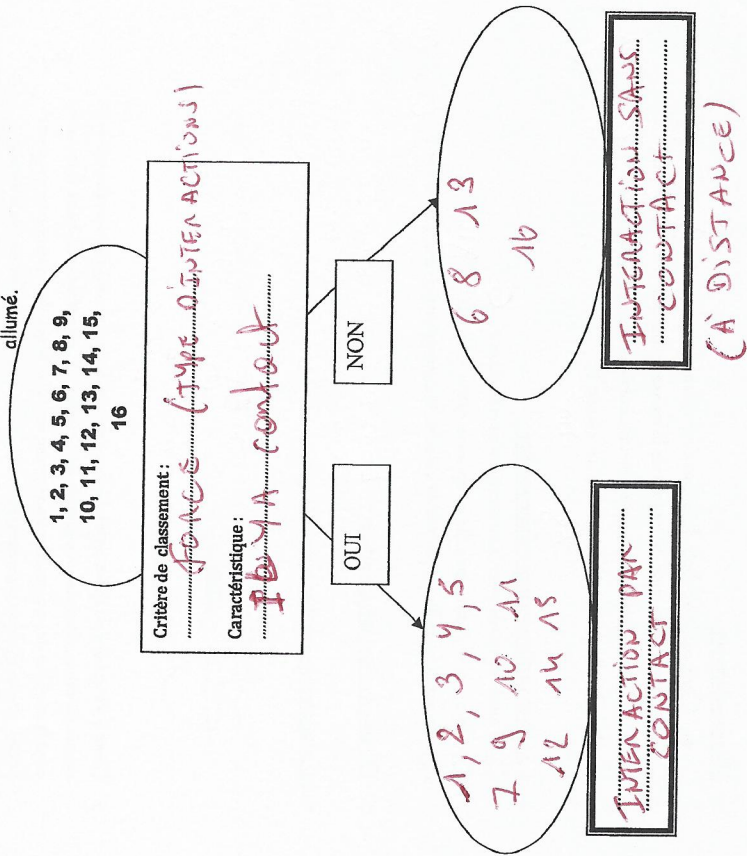 allumé.
1, 2, 3, 4, 5, 6, 7, 8, 9,
10, 11, 12, 13, 14, 15,
16
Critère de classement :
FORCE (type D'INTERACTIONS)
Caractéristique :
Il Y A contact
OUI
NON
1, 2, 3, 4, 5
7 9 10 11
12 14 15
6 8 13
16
INTERACTION PAR
CONTACT
INTERACTION SANS
CONTACT
(À DISTANCE)